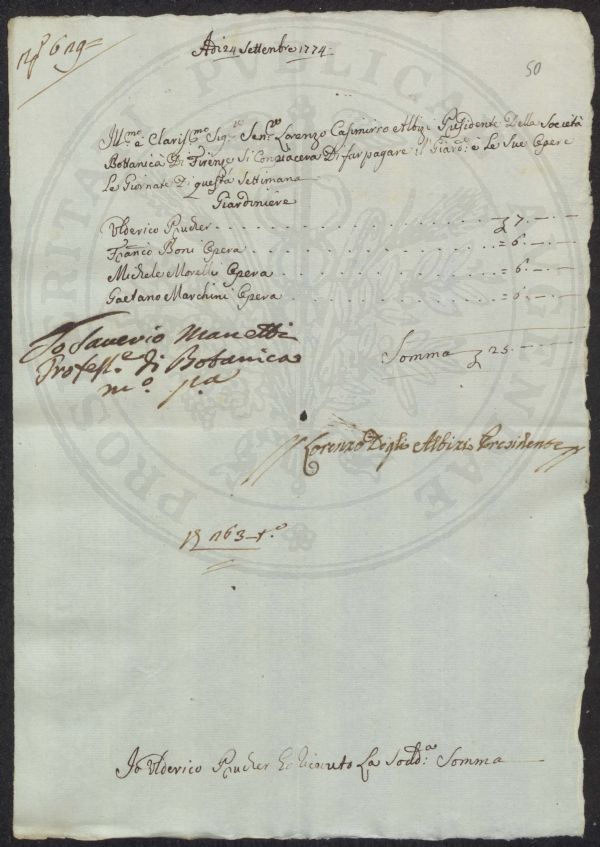 N.º 629=
Adi 24 Settembre 1774.
50
Ill.mo e Claris.mo Sig.re Sen.re Lorenzo Casimirro Albizi Presidente Della Società
Bottanica Di Firenze Si Conpiacera Di far pagare il Giard.e e le Sue Opere
Le Giornate Di questa Settimana
Giardiniere
Ulderico Prucher 7. — . —
Franco Boni Opera = 6. — . —
Michele Morelli Opera = 6. — . —
Gaetano Marchini Opera = 6. — . —
Somma 25. — . —
Io Saverio Manetti
Profess.e di Botanica
m.o p.a
Lorenzo Degli Albizi Presidente
163 t.o
Io Ulderico Prucher ho riceuto La Sodd.a Somma
PROSPERITATI PUBLICAE AUGENDAE